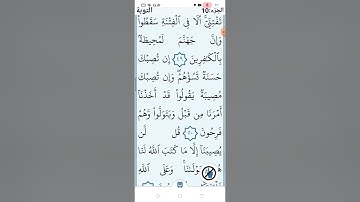 الجزء: 10 التوبة
تَفْتِنِّيٓ أَلَا فِي ٱلْفِتْنَةِ سَقَطُوا۟
وَإِنَّ جَهَنَّمَ لَمُحِيطَةٌۢ
بِٱلْكَٰفِرِينَ ﴿٤٩﴾ إِن تُصِبْكَ
حَسَنَةٌ تَسُؤْهُمْ وَإِن تُصِبْكَ
مُصِيبَةٌ يَقُولُوا۟ قَدْ أَخَذْنَآ
أَمْرَنَا مِن قَبْلُ وَيَتَوَلَّوا۟ وَّهُمْ
فَرِحُونَ ﴿٥٠﴾ قُل لَّن
يُصِيبَنَآ إِلَّا مَا كَتَبَ ٱللَّهُ لَنَا
هُوَ مَوْلَىٰنَا وَعَلَى ٱللَّهِ